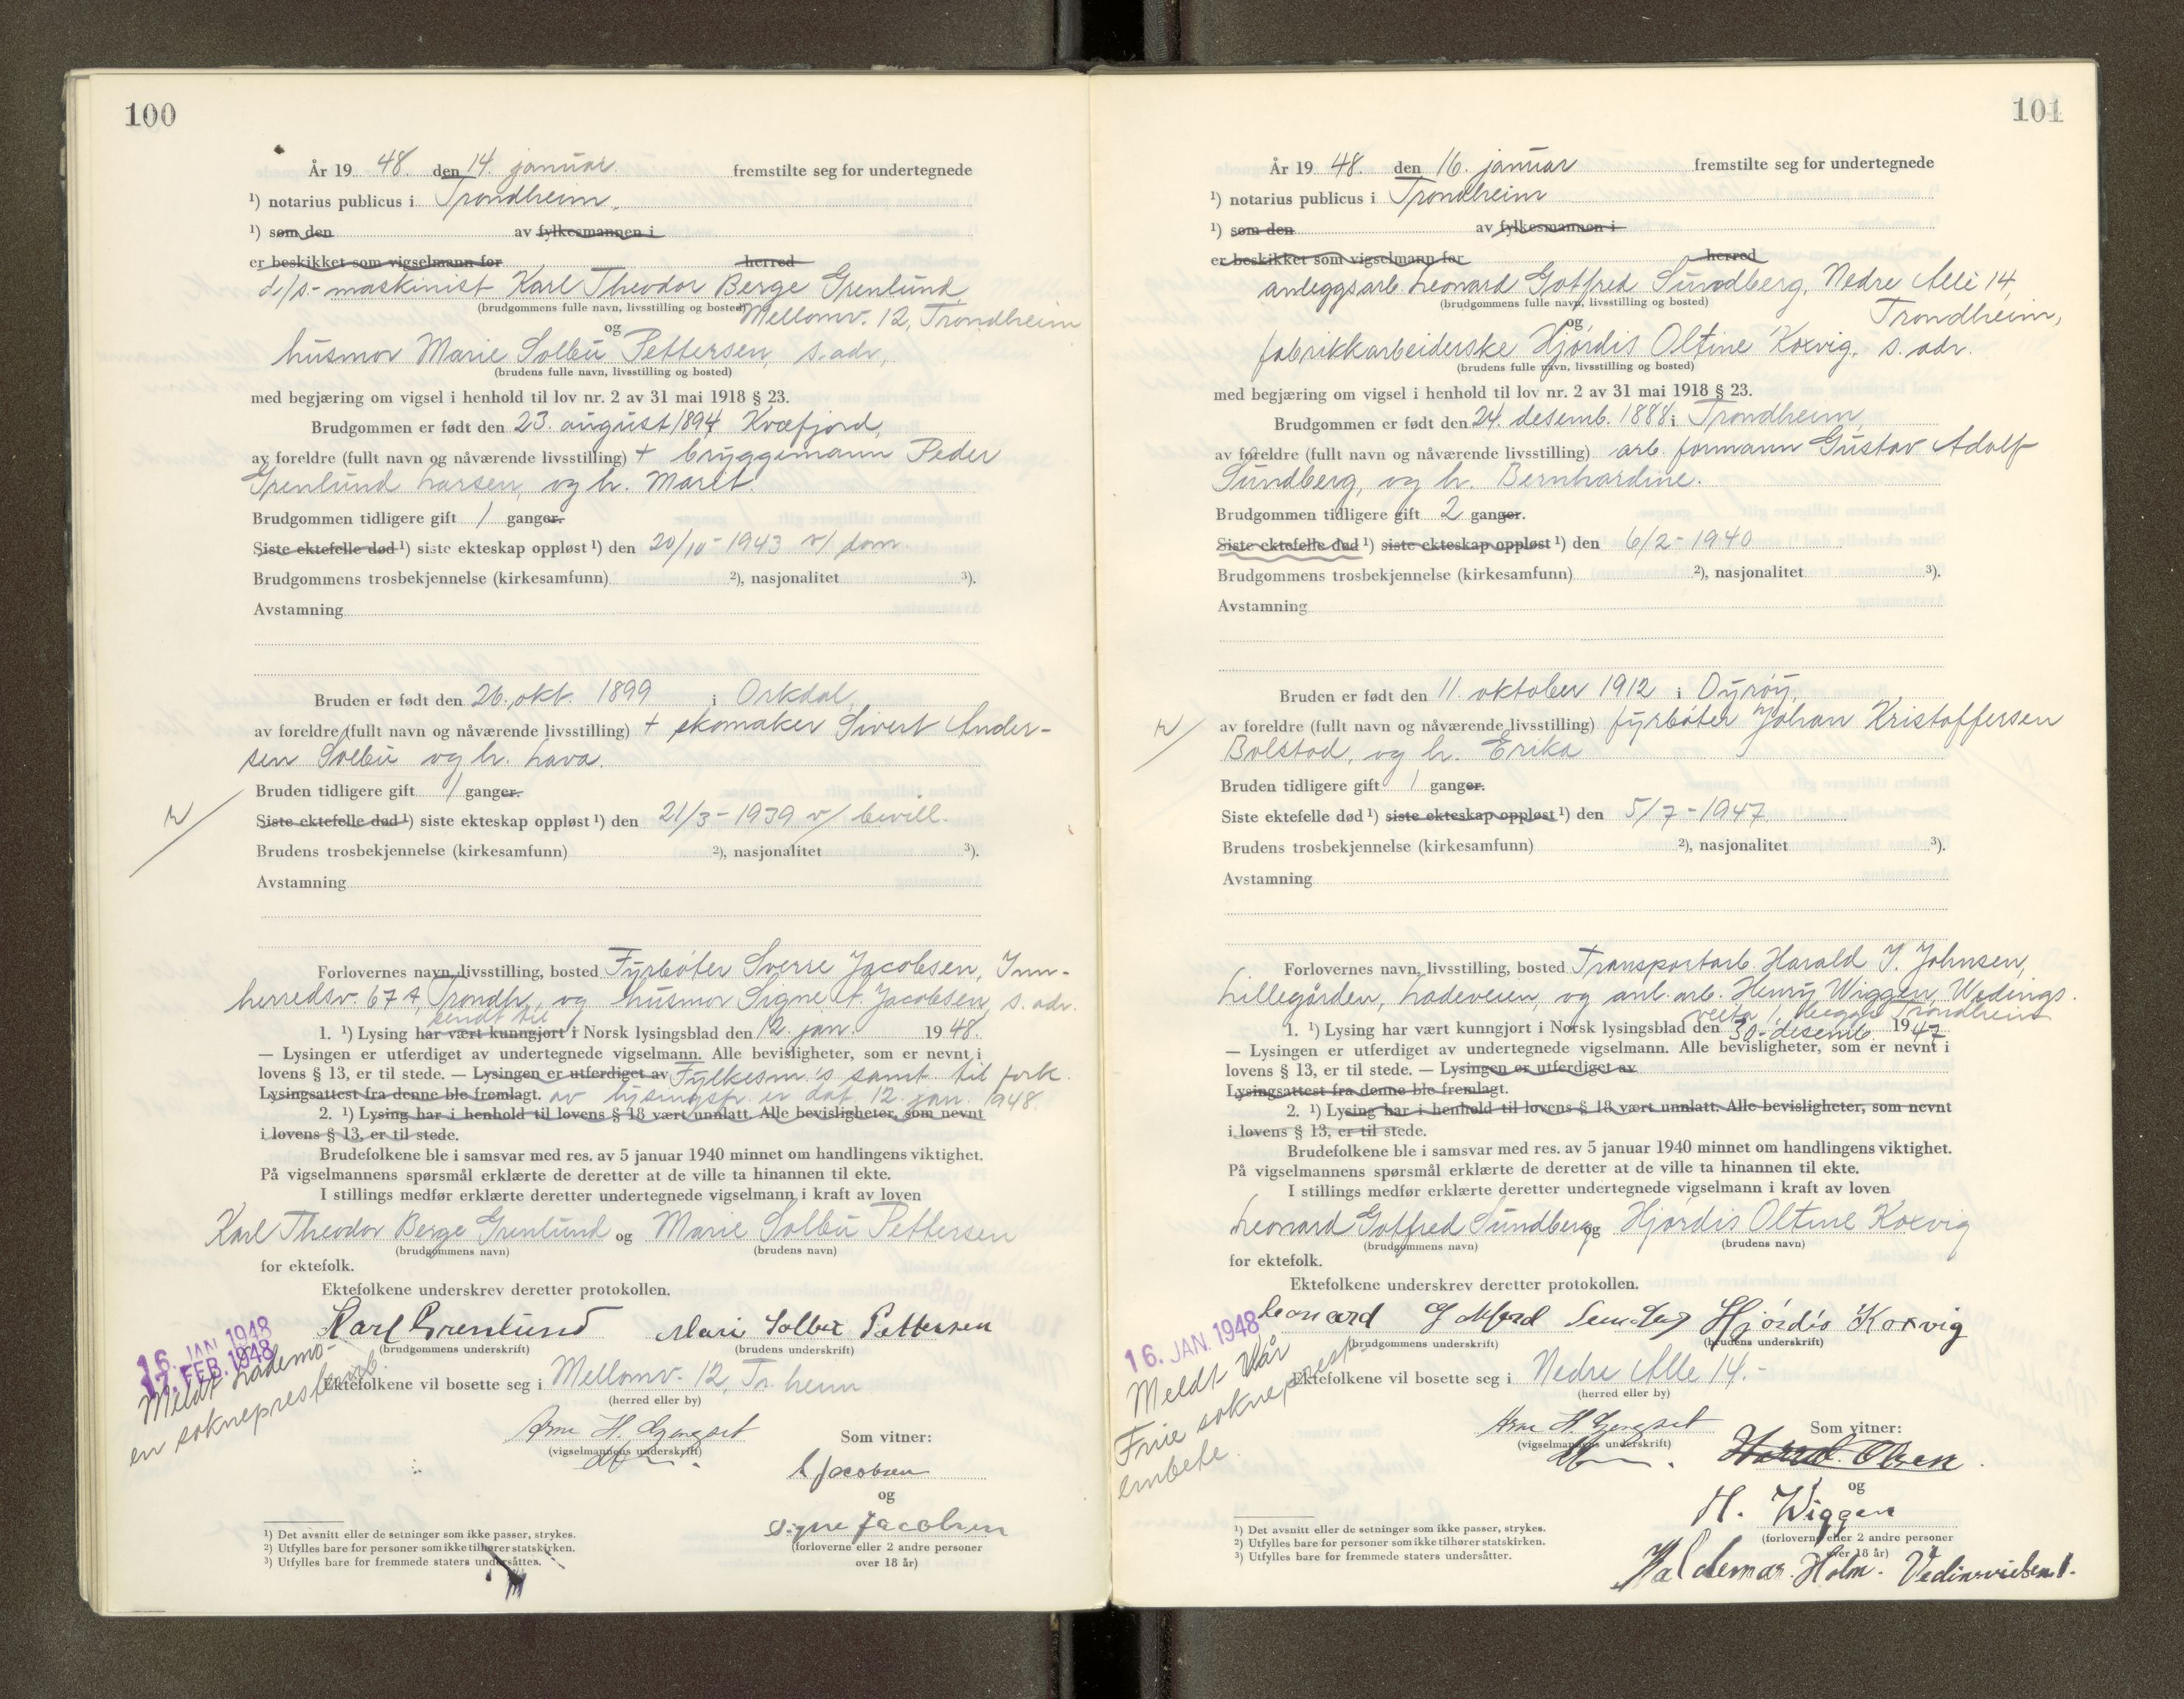 100
År 19 48. den 14. januar. fremstilte seg for undertegnede
¹) notarius publicus i Trondheim.
¹) som den av fylkesmannen i
er beskikket som vigselmann for herred
d/s- maskinist Karl Theodor Berge Grenlund,
(brudgommens fulle navn, livsstilling og bosted) Mellomv. 12, Trondheim
og
husmor Marie Solbu Pettersen, s. adr,
(brudens fulle navn, livsstilling og bosted)
med begjæring om vigsel i henhold til lov nr. 2 av 31 mai 1918 § 23.
Brudgommen er født den 23. august 1894 Kvæfjord,
av foreldre (fullt navn og nåværende livsstilling) + bryggemann Peder
Grenlund Larsen, og h. Maret.
Brudgommen tidligere gift 1 ganger.
Siste ektefelle død ¹) siste ekteskap oppløst ¹) den 20/10 - 1943 v/ dom.
Brudgommens trosbekjennelse (kirkesamfunn) ²), nasjonalitet ³).
Avstamning
Bruden er født den 26. okt. 1899 i Orkdal,
av foreldre (fullt navn og nåværende livsstilling) + skomaker Sivert Ander-
sen Solbu og h. Lava.
Bruden tidligere gift 1 ganger.
Siste ektefelle død ¹) siste ekteskap oppløst ¹) den 21/3 - 1939 v/ bevill.
Brudens trosbekjennelse (kirkesamfunn) ²), nasjonalitet ³).
Avstamning
Forlovernes navn, livsstilling, bosted Fyrbøter Sverre Jacobsen, Inn-
herredsv. 67 A, Trondh., og husmor Signe A. Jacobsen, s. adr.
sendt til
1. ¹) Lysing har vært kunngjort i Norsk lysingsblad den 12. jan. 19 48.
— Lysingen er utferdiget av undertegnede vigselmann. Alle bevisligheter, som er nevnt i
lovens § 13, er til stede. — Lysingen er utferdiget av Fylkesm.'s samt. til fork.
Lysingsattest fra denne ble fremlagt. av lysingsfr. er dat. 12. jan. 1948.
2. ¹) Lysing har i henhold til lovens § 18 vært unnlatt. Alle bevisligheter, som nevnt
i lovens § 13, er til stede.
Brudefolkene ble i samsvar med res. av 5 januar 1940 minnet om handlingens viktighet.
På vigselmannens spørsmål erklærte de deretter at de ville ta hinannen til ekte.
I stillings medfør erklærte deretter undertegnede vigselmann i kraft av loven
Karl Theodor Berge Grenlund og Marie Solbu Pettersen
(brudgommens navn) (brudens navn)
for ektefolk.
Ektefolkene underskrev deretter protokollen.
Karl Grenlund Mari Solbu Pettersen
(brudgommens underskrift) (brudens underskrift)
16. JAN. 1948
17. FEB. 1948
Meldt Lademo-
en sokneprestemb.
Ektefolkene vil bosette seg i Mellomv. 12, Tr. heim
(herred eller by)
Arne H. Gjengset
(vigselmannens underskrift)
Som vitner:
S Jacobsen
og
Signe Jacobsen
(forloverne eller 2 andre personer
over 18 år)
¹) Det avsnitt eller de setninger som ikke passer, strykes.
²) Utfylles bare for personer som ikke tilhører statskirken.
³) Utfylles bare for fremmede staters undersåtter.
101
År 19 48. den 16. januar fremstilte seg for undertegnede
¹) notarius publicus i Trondheim
¹) som den av fylkesmannen i
er beskikket som vigselmann for herred
anleggsarb. Leonard Gotfred Sundberg, Nedre Alle 14,
(brudgommens fulle navn, livsstilling og bosted) Trondheim,
og
fabrikkarbeiderske Hjørdis Oltine Koxvig, s. adr.
(brudens fulle navn, livsstilling og bosted)
med begjæring om vigsel i henhold til lov nr. 2 av 31 mai 1918 § 23.
Brudgommen er født den 24. desemb. 1888 i Trondheim,
av foreldre (fullt navn og nåværende livsstilling) arb. formann Gustav Adolf
Sundberg, og h. Bernhardine.
Brudgommen tidligere gift 2 ganger.
Siste ektefelle død ¹) siste ekteskap oppløst ¹) den 6/2 - 1940
Brudgommens trosbekjennelse (kirkesamfunn) ²), nasjonalitet ³).
Avstamning
Bruden er født den 11. oktober 1912 i Dyrøy,
av foreldre (fullt navn og nåværende livsstilling) fyrbøter Johan Kristoffersen
Bolstad, og h. Erika
Bruden tidligere gift 1 ganger.
Siste ektefelle død ¹) siste ekteskap oppløst ¹) den 5/7 - 1947
Brudens trosbekjennelse (kirkesamfunn) ²), nasjonalitet ³).
Avstamning
Forlovernes navn, livsstilling, bosted Transportarb. Harald J. Johnsen,
Lillegården, Ladeveien, og anl. arb. Henry Wiggen, Wedings.
veita 1, begge Trondheim
1. ¹) Lysing har vært kunngjort i Norsk lysingsblad den 30. desemb. 19 47
— Lysingen er utferdiget av undertegnede vigselmann. Alle bevisligheter, som er nevnt i
lovens § 13, er til stede. — Lysingen er utferdiget av
Lysingsattest fra denne ble fremlagt.
2. ¹) Lysing har i henhold til lovens § 18 vært unnlatt. Alle bevisligheter, som nevnt
i lovens § 13, er til stede.
Brudefolkene ble i samsvar med res. av 5 januar 1940 minnet om handlingens viktighet.
På vigselmannens spørsmål erklærte de deretter at de ville ta hinannen til ekte.
I stillings medfør erklærte deretter undertegnede vigselmann i kraft av loven
Leonard Gotfred Sundberg og Hjørdis Oltine Koxvig
(brudgommens navn) (brudens navn)
for ektefolk.
Ektefolkene underskrev deretter protokollen.
Leonard Gottfred Sundberg Hjördis Koxvig
(brudgommens underskrift) (brudens underskrift)
16. JAN. 1948
Meldt Vår
Frue sokneprest-
embete.
Ektefolkene vil bosette seg i Nedre Alle 14.-
(herred eller by)
Arne H. Gjengset
(vigselmannens underskrift)
Som vitner:
Harald Olsen
og
H. Wiggen
(forloverne eller 2 andre personer
over 18 år)
Valdemar Holm.
¹) Det avsnitt eller de setninger som ikke passer, strykes.
²) Utfylles bare for personer som ikke tilhører statskirken.
³) Utfylles bare for fremmede staters undersåtter.